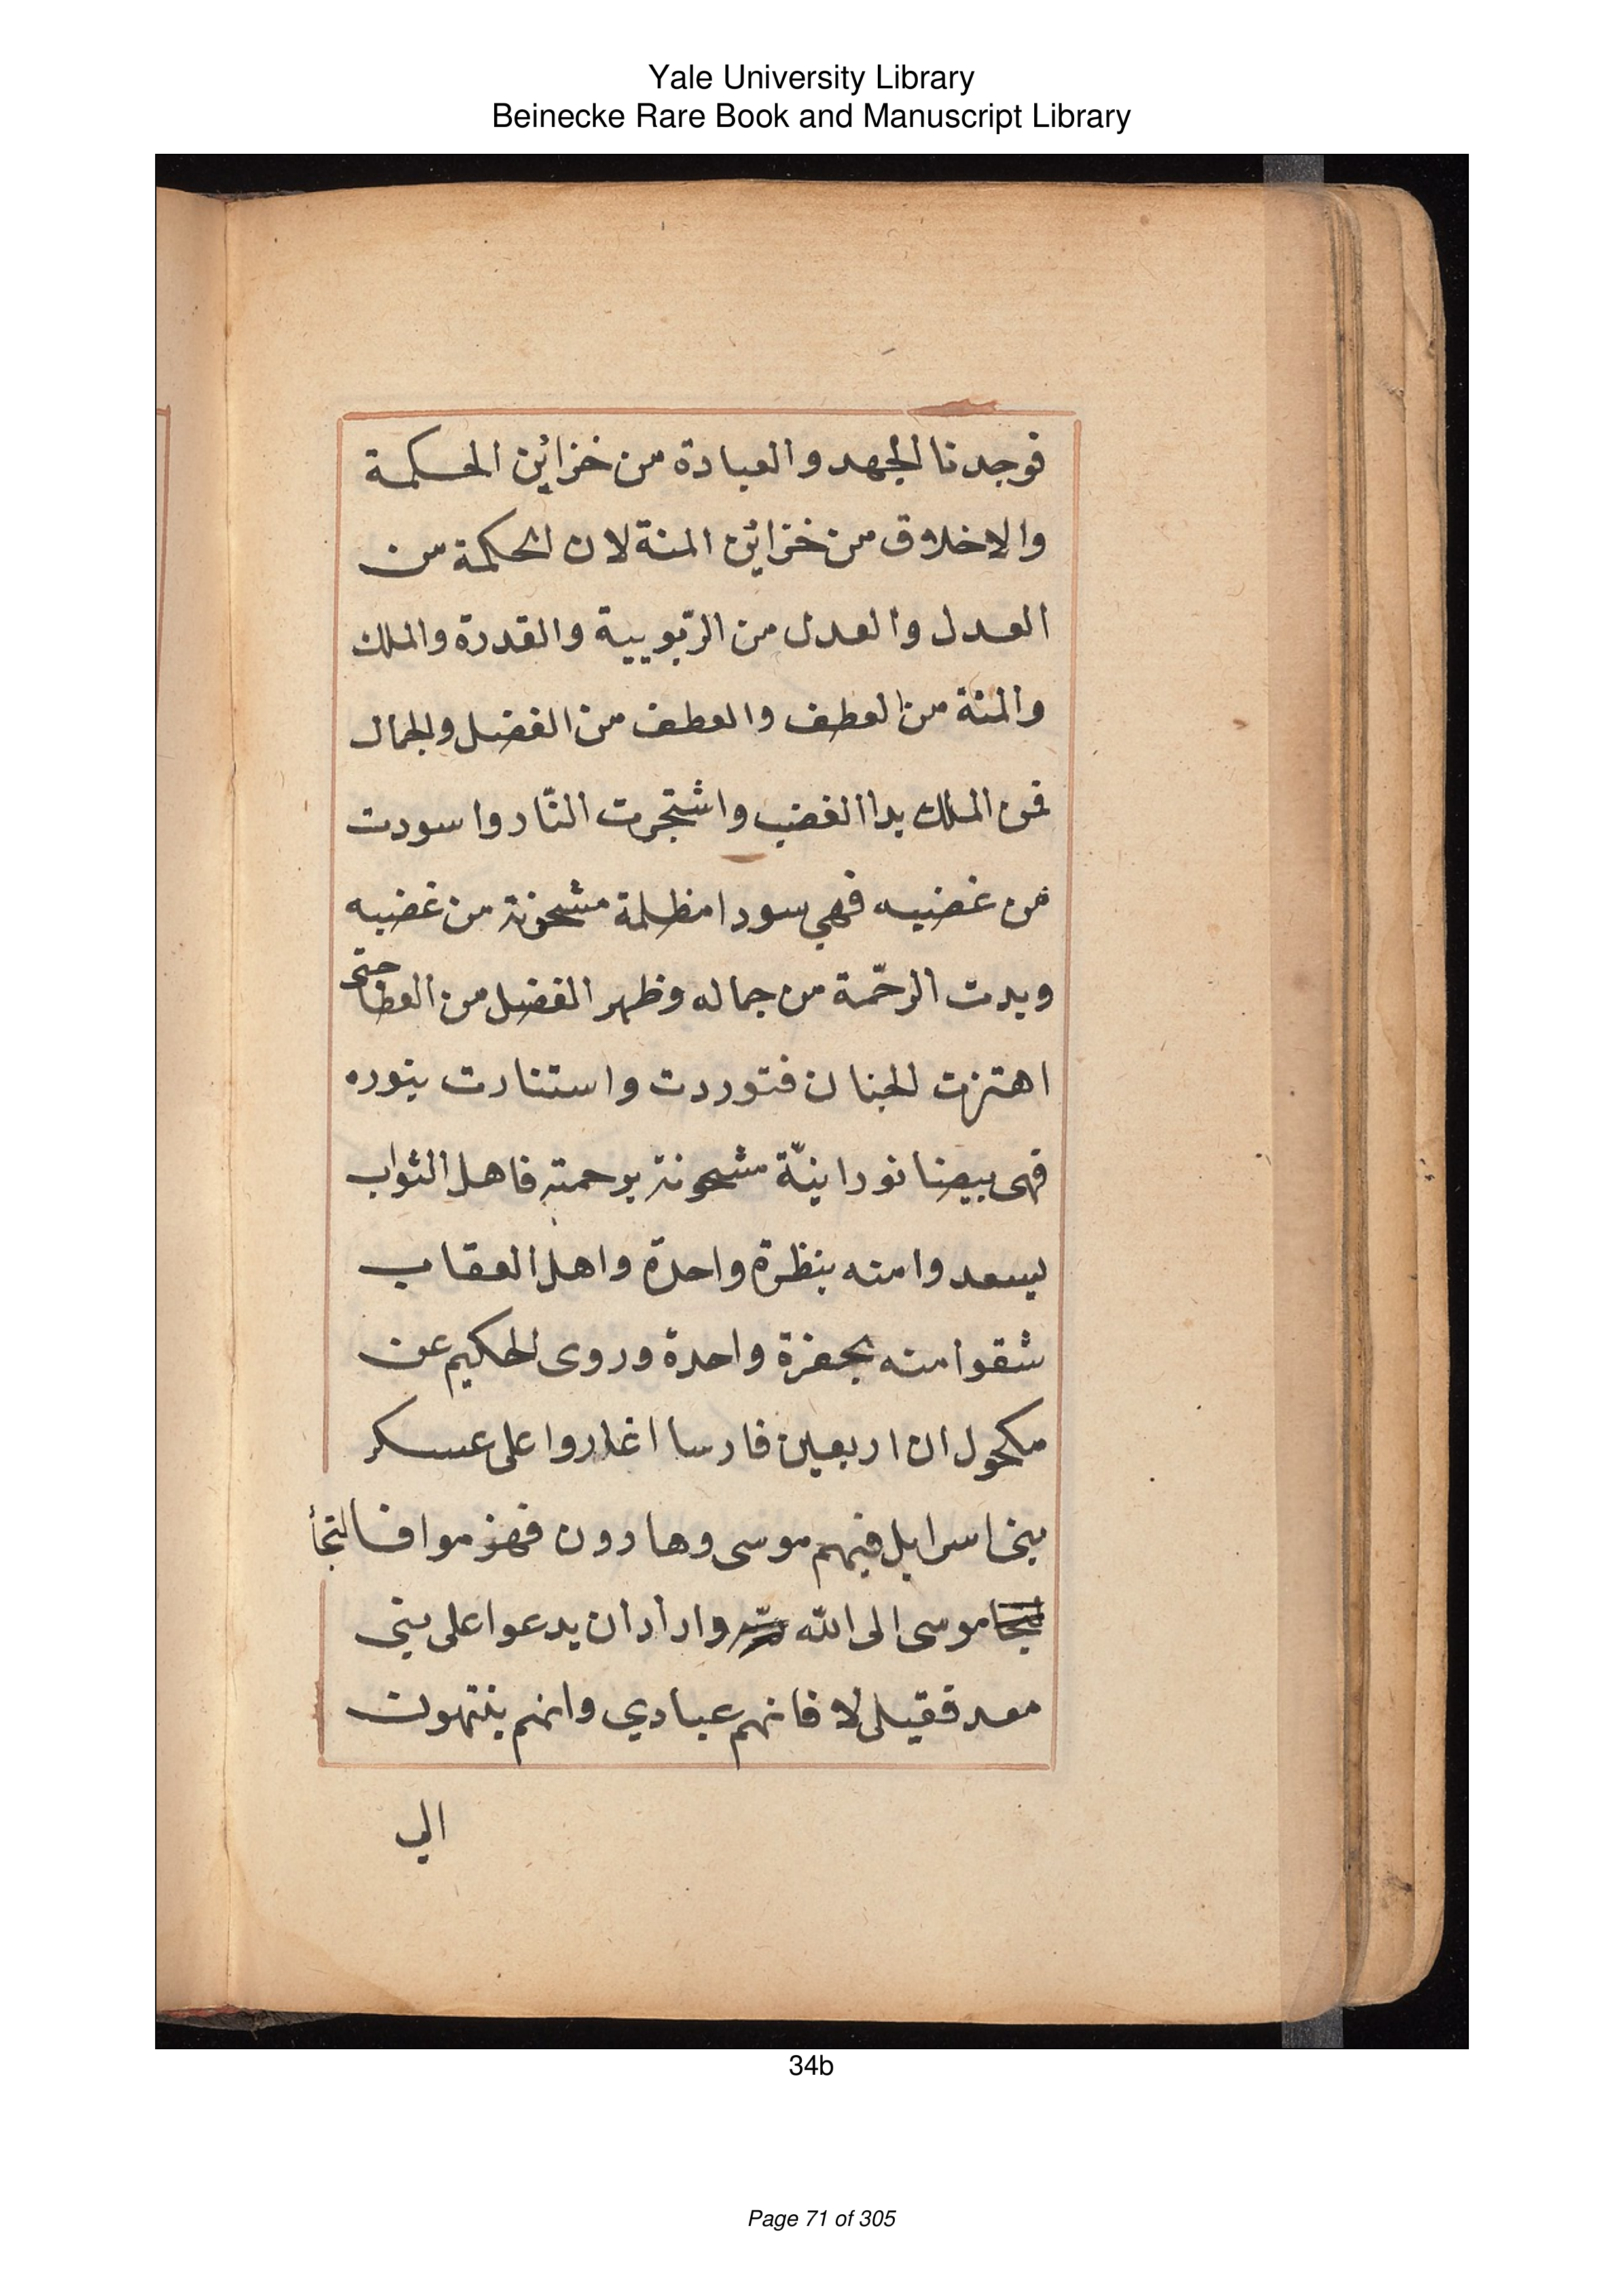 Yale University Library
Beinecke Rare Book and Manuscript Library
فوجدنا الجهد والعبادة من خزائن الحكمة
والاخلاق من خزائن المنة لان الحكمة من
العدل والعدل من الربّوبية والقدرة والملك
والمنة من العطف والعطف من الفضل والجمال
فمن الملك بدا الغضب واشتجرت النّار واسودت
من غضبه فهي سودا مظلمة مشحونة من غضبه
وبدت الرحّمة من جماله وظهر الفضل من العطا حتى
اهتزت الجنان فتوردت واستنارت بنوره
فهى بيضا نورانيّة مشحونة برحمته فاهل الثواب
ليسعدوا منه بنظرة واحدة واهل العقاب
شقوا منه بجفزة واحدة وروى الحكيم عن
مكحول ان اربعين فارسا اغاروا على عسكر
بنى اسرايل فيهم موسى وهارون فهزموا فالتجأ
موسى الى الله واراد ان يدعوا على بنى
معد فقيل لا فانهم عبادي وانهم ينتهون
الي
34b
Page 71 of 305